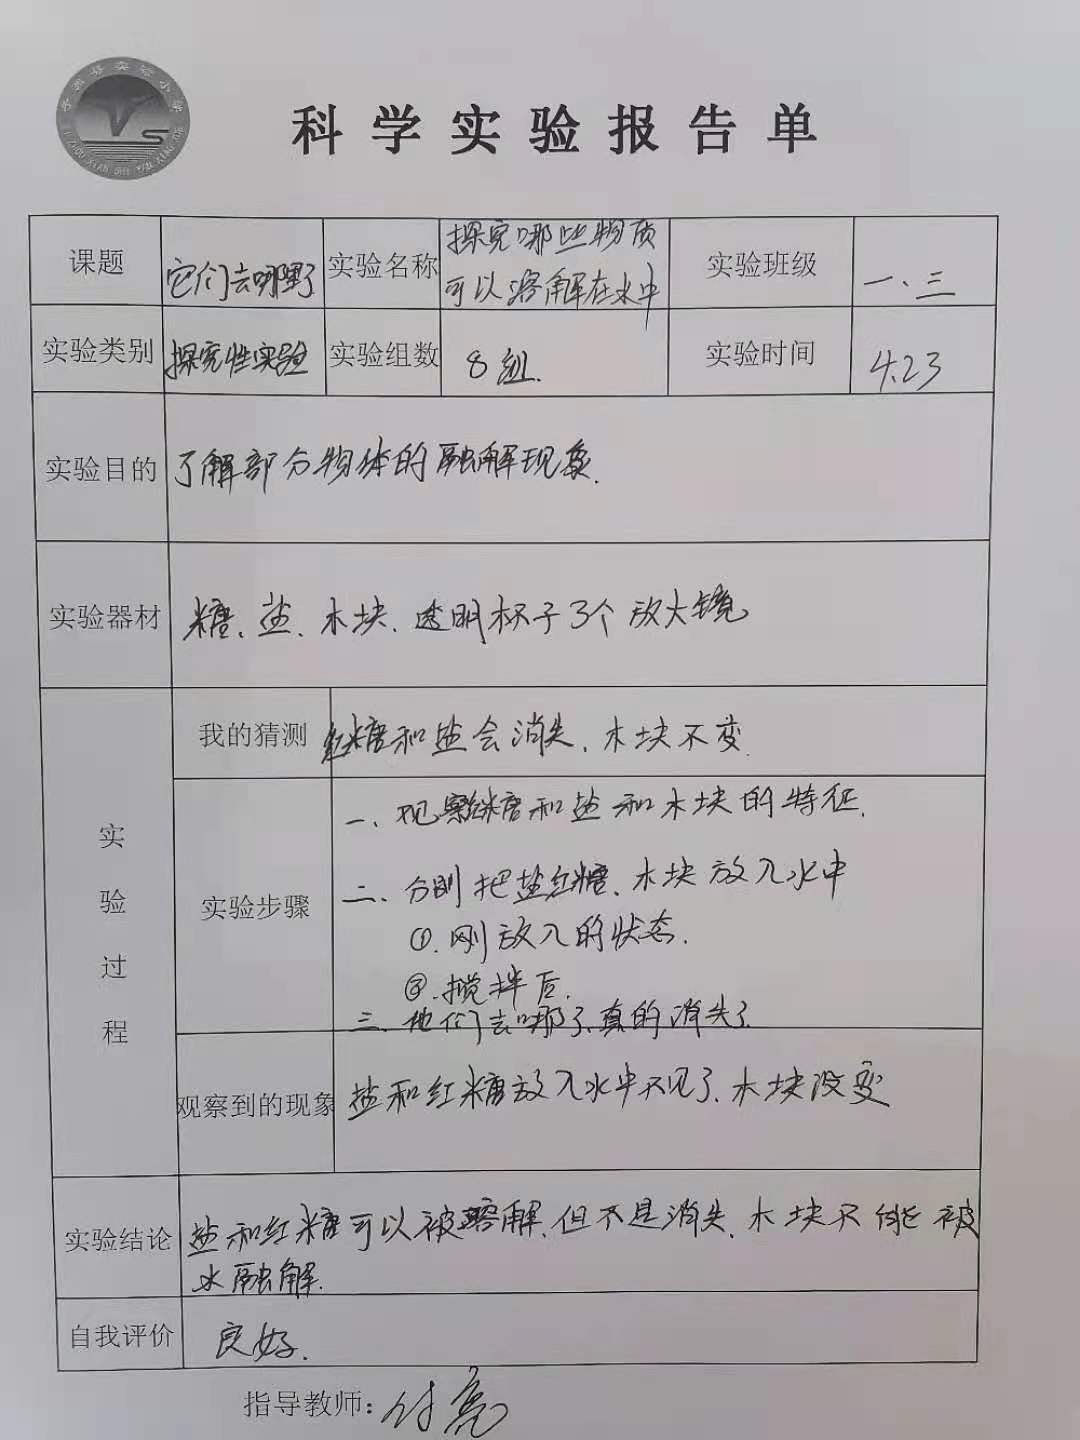 科学实验报告单
课题 它们去哪野了 实验名称 探究哪些物质
可以溶解在水中 实验班级 一、三
实验类别 探究性实验 实验组数 8组. 实验时间 4.23
实验目的 了解部分物体的融解现象.
实验器材 糖、盐、木块、透明杯子3个 放大镜
实验过程
我的猜测 红糖和盐会消失、木块不变.
实验步骤
一、观察红糖和盐和木块的特征.
二、分别把盐红糖、木块放入水中
①.刚放入的状态.
②.搅拌后.
三、他们去哪了、真的消失了
观察到的现象 盐和红糖放入水中不见了、木块没变
实验结论 盐和红糖可以被溶解、但不是消失、木块不能被
水融解.
自我评价 良好.
指导教师：付亮